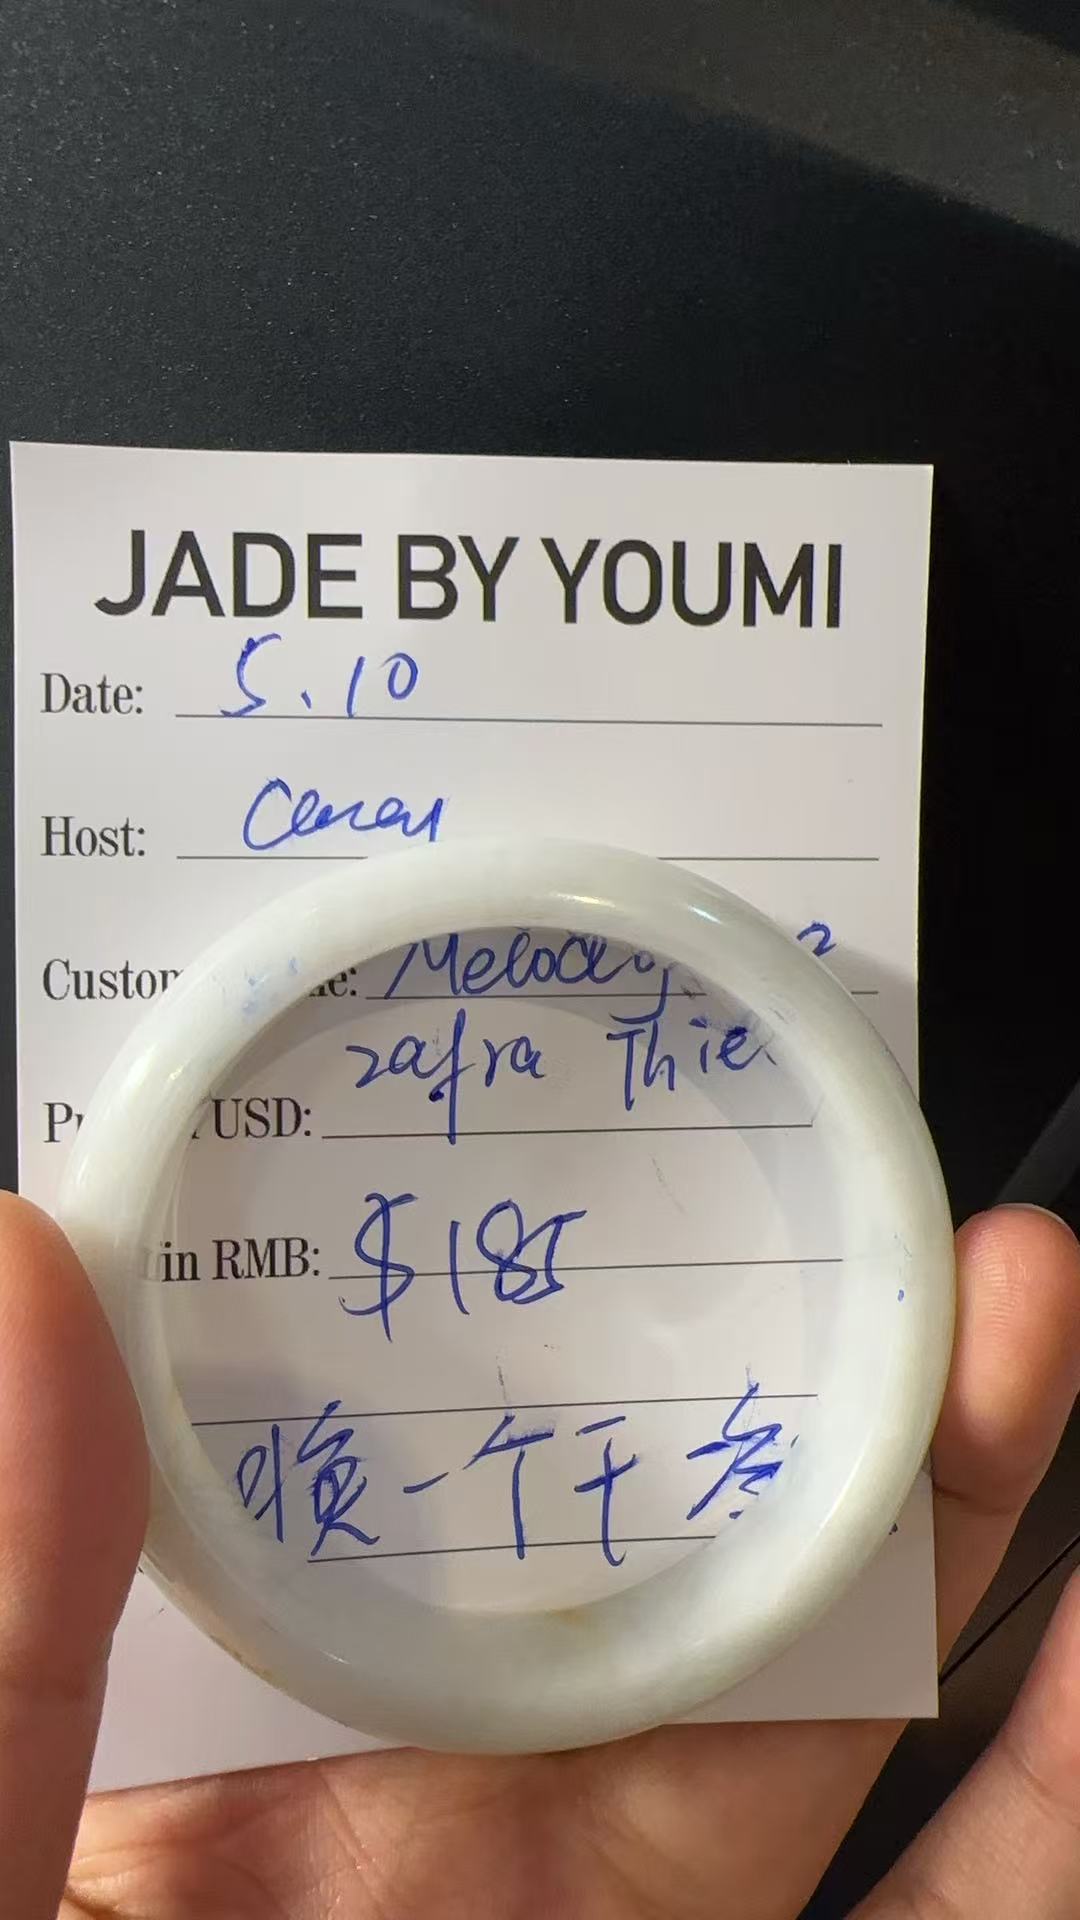 JADE BY YOUMI
Date: 5.10
Host:
Custom e: Melody
zafra Thie
USD:
in RMB: $185
换一个干参